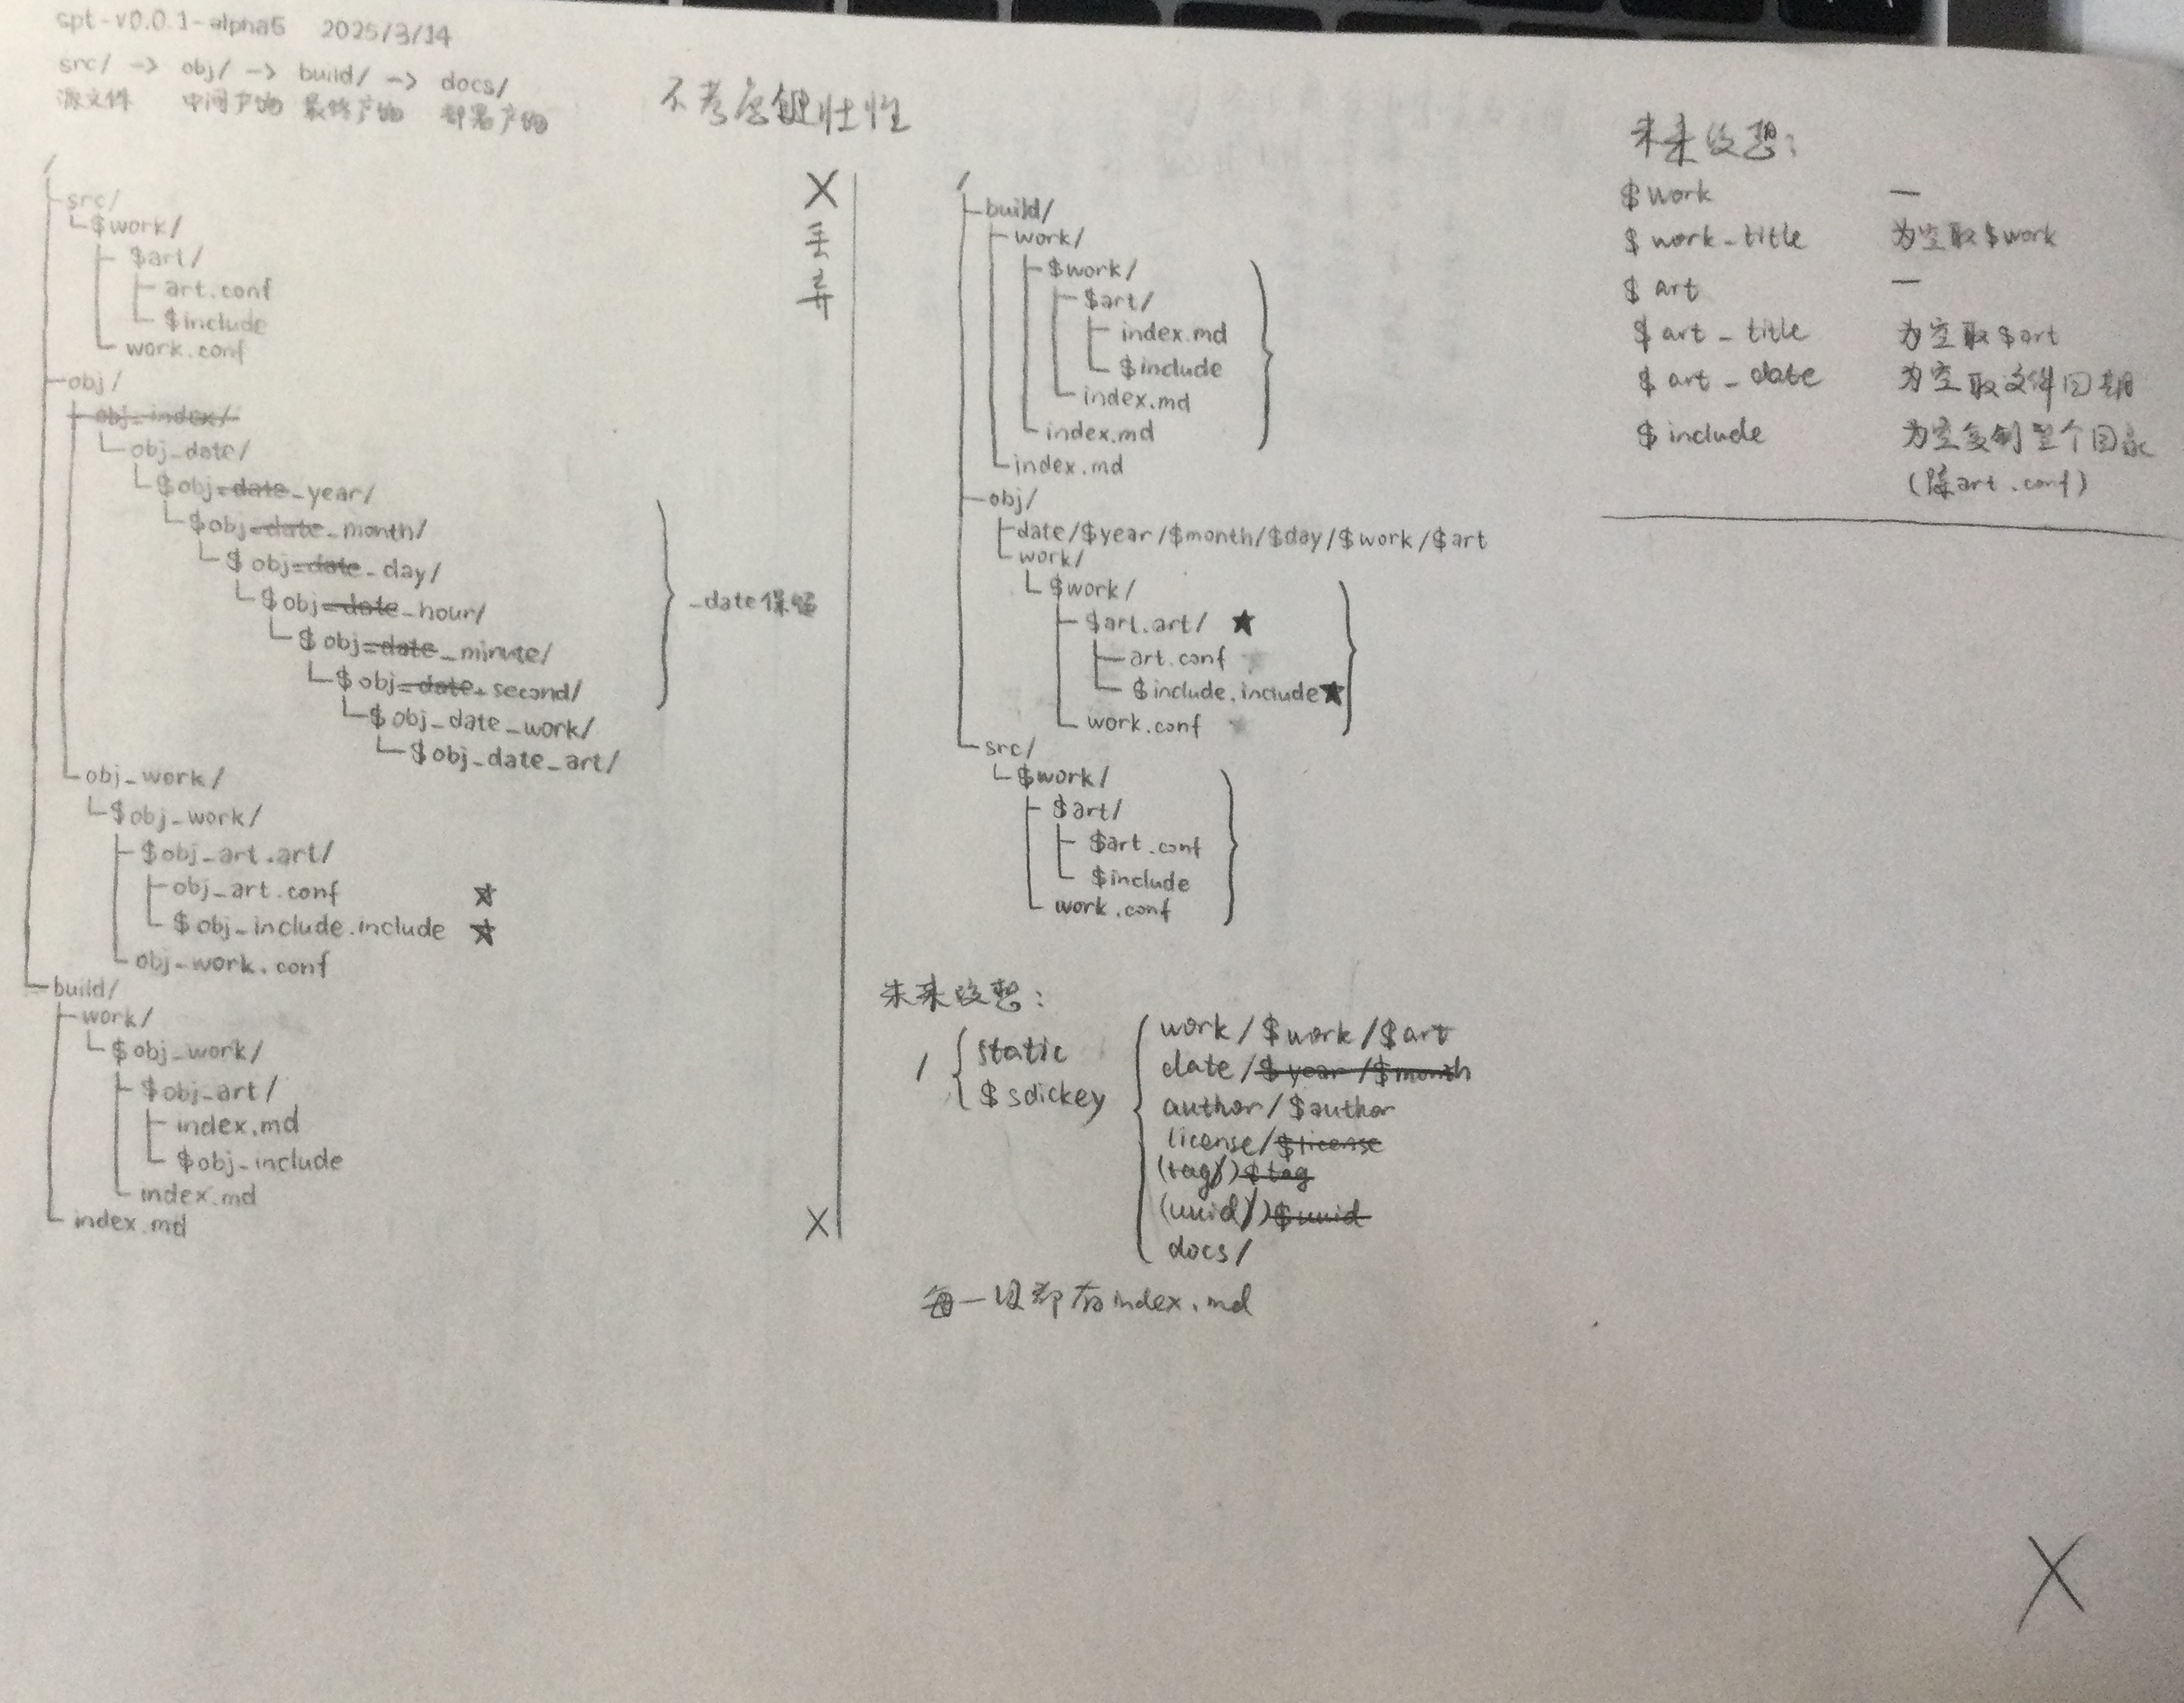 spt-v0.0.1-alpha5 2025/3/14
src/ -> obj/ -> build/ -> docs/
源文件 中间产物 最终产物 部署产物
不考虑健壮性
/
src/
$work/
$art/
art.conf
$include
work.conf
obj/
obj_index/
obj_date/
$obj_date_year/
$obj_date_month/
$obj_date_day/
$obj_date_hour/
$obj_date_minute/
$obj_date_second/
_date保留
$obj_date_work/
$obj_date_art/
obj_work/
$obj_work/
$obj_art.art/
obj_art.conf ★
$obj_include.include ★
obj_work.conf
build/
work/
$obj_work/
$obj_art/
index.md
$obj_include
index.md
index.md
X
丢
弃
X
/
build/
work/
$work/
$art/
index.md
$include
index.md
index.md
index.md
obj/
date/$year/$month/$day/$work/$art
work/
$work/
$art.art/ ★
art.conf
$include.include★
work.conf
src/
$work/
$art/
$art.conf
$include
work.conf
未来设想:
/ { static
$sdickey
work/$work/$art
date/$year/$month
author/$author
license/$license
(tag/)$tag
(uuid/)$uuid
docs/
每一级都有index.md
未来设想:
$work —
$work_title 为空取$work
$art —
$art_title 为空取$art
$art_date 为空取文件日期
$include 为空复制整个目录
(除art.conf)
X